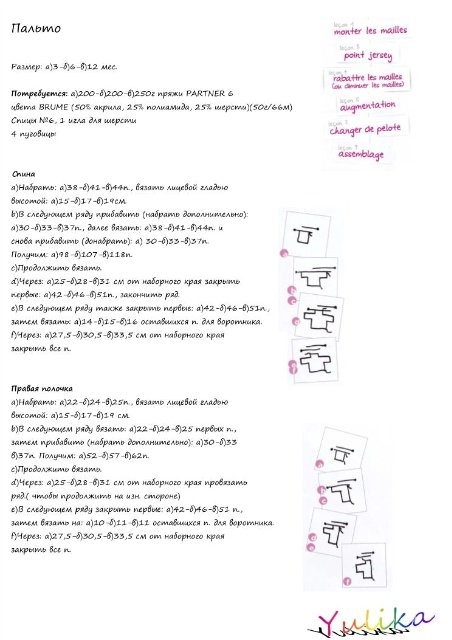 Пальто
leçon 1
monter les mailles
leçon 3
point jersey
leçon 4
rabattre les mailles
(ou diminuer les mailles)
leçon 5
augmentation
leçon 7
changer de pelote
leçon 9
assemblage
Размер: а)3-б)6-в)12 мес.
Потребуется: а)200-б)200-в)250г пряжи PARTNER 6
цвета BRUME (50% акрила, 25% полиамида, 25% шерсти)(50г/66м)
Спицы №6, 1 игла для шерсти
4 пуговицы
Спина
a)Набрать: а)38-б)41-в)44п., вязать лицевой гладью
высотой: а)15-б)17-в)19см.
b)В следующем ряду прибавить (набрать дополнительно):
а)30-б)33-в)37п., далее вязать: а)38-б)41-в)44п. и
снова прибавить (донабрать): а) 30-б)33-в)37п.
Получим: а)98-б)107-в)118п.
c)Продолжить вязать.
d)Через: а)25-б)28-в)31 см от наборного края закрыть
первые: а)42-б)46-в)51п., закончить ряд.
e)В следующем ряду также закрыть первые: а)42-б)46-в)51п.,
затем вязать: а)14-б)15-в)16 оставшихся п. для воротника.
f)Через: а)27,5-б)30,5-в)33,5 см от наборного края
закрыть все п.
Правая полочка
a)Набрать: а)22-б)24-в)25п., вязать лицевой гладью
высотой: а)15-б)17-в)19 см.
b)В следующем ряду вязать: а)22-б)24-в)25 первых п.,
затем прибавить (набрать дополнительно): а)30-б)33
в)37п. Получим: а)52-б)57-в)62п.
c)Продолжить вязать.
d)Через: а)25-б)28-в)31 см от наборного края провязать
ряд.( чтобы продолжить на изн. стороне)
e)В следующем ряду закрыть первые: а)42-б)46-в)51 п.,
затем вязать на: а)10-б)11-в)11 оставшихся п. для воротника.
f)Через: а)27,5-б)30,5-в)33,5 см от наборного края
закрыть все п.
Yulika